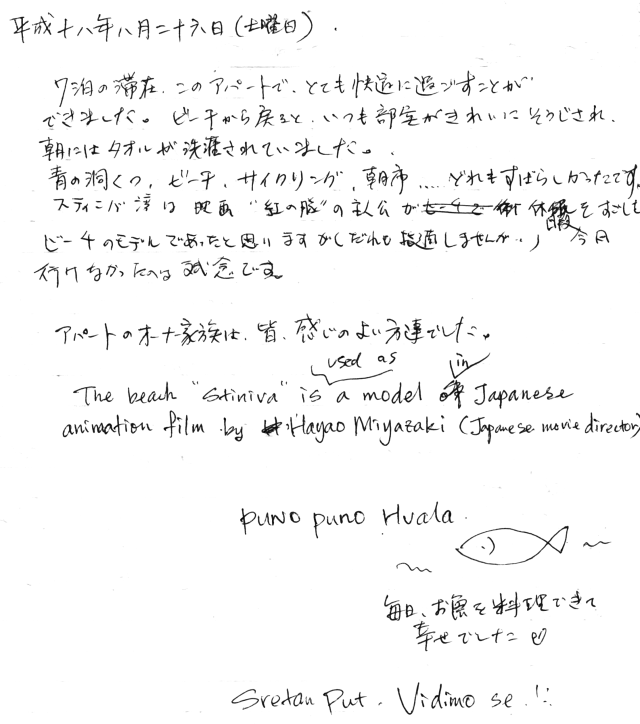 平成十八年八月二十六日(土曜日).
7泊の滞在、このアパートで、とても快適に過ごすことが
できました。ビーチから戻ると、いつも部屋がきれいにそうじされ、
朝にはタオルが洗濯されていました。
青の洞くつ、ビーチ、サイクリング、朝市.... どれもすばらしかったです。
スティニバ 湾は 映画 "紅の豚"の主人公が 休暇をすごした
ビーチのモデルであったと思いますが(だれも指適しませんが..) 今日
行けなかったのは 残念です。
アパートのオーナー家族は、皆、感じのよい方達でした。
used as in
The beach "Stiniva" is a model Japanese
animation film by Hayao Miyazaki (Japanese movie director)
puno puno Hvala.
毎日、お魚を料理できて
幸せでした
Sretan Put. Vidimo se !!